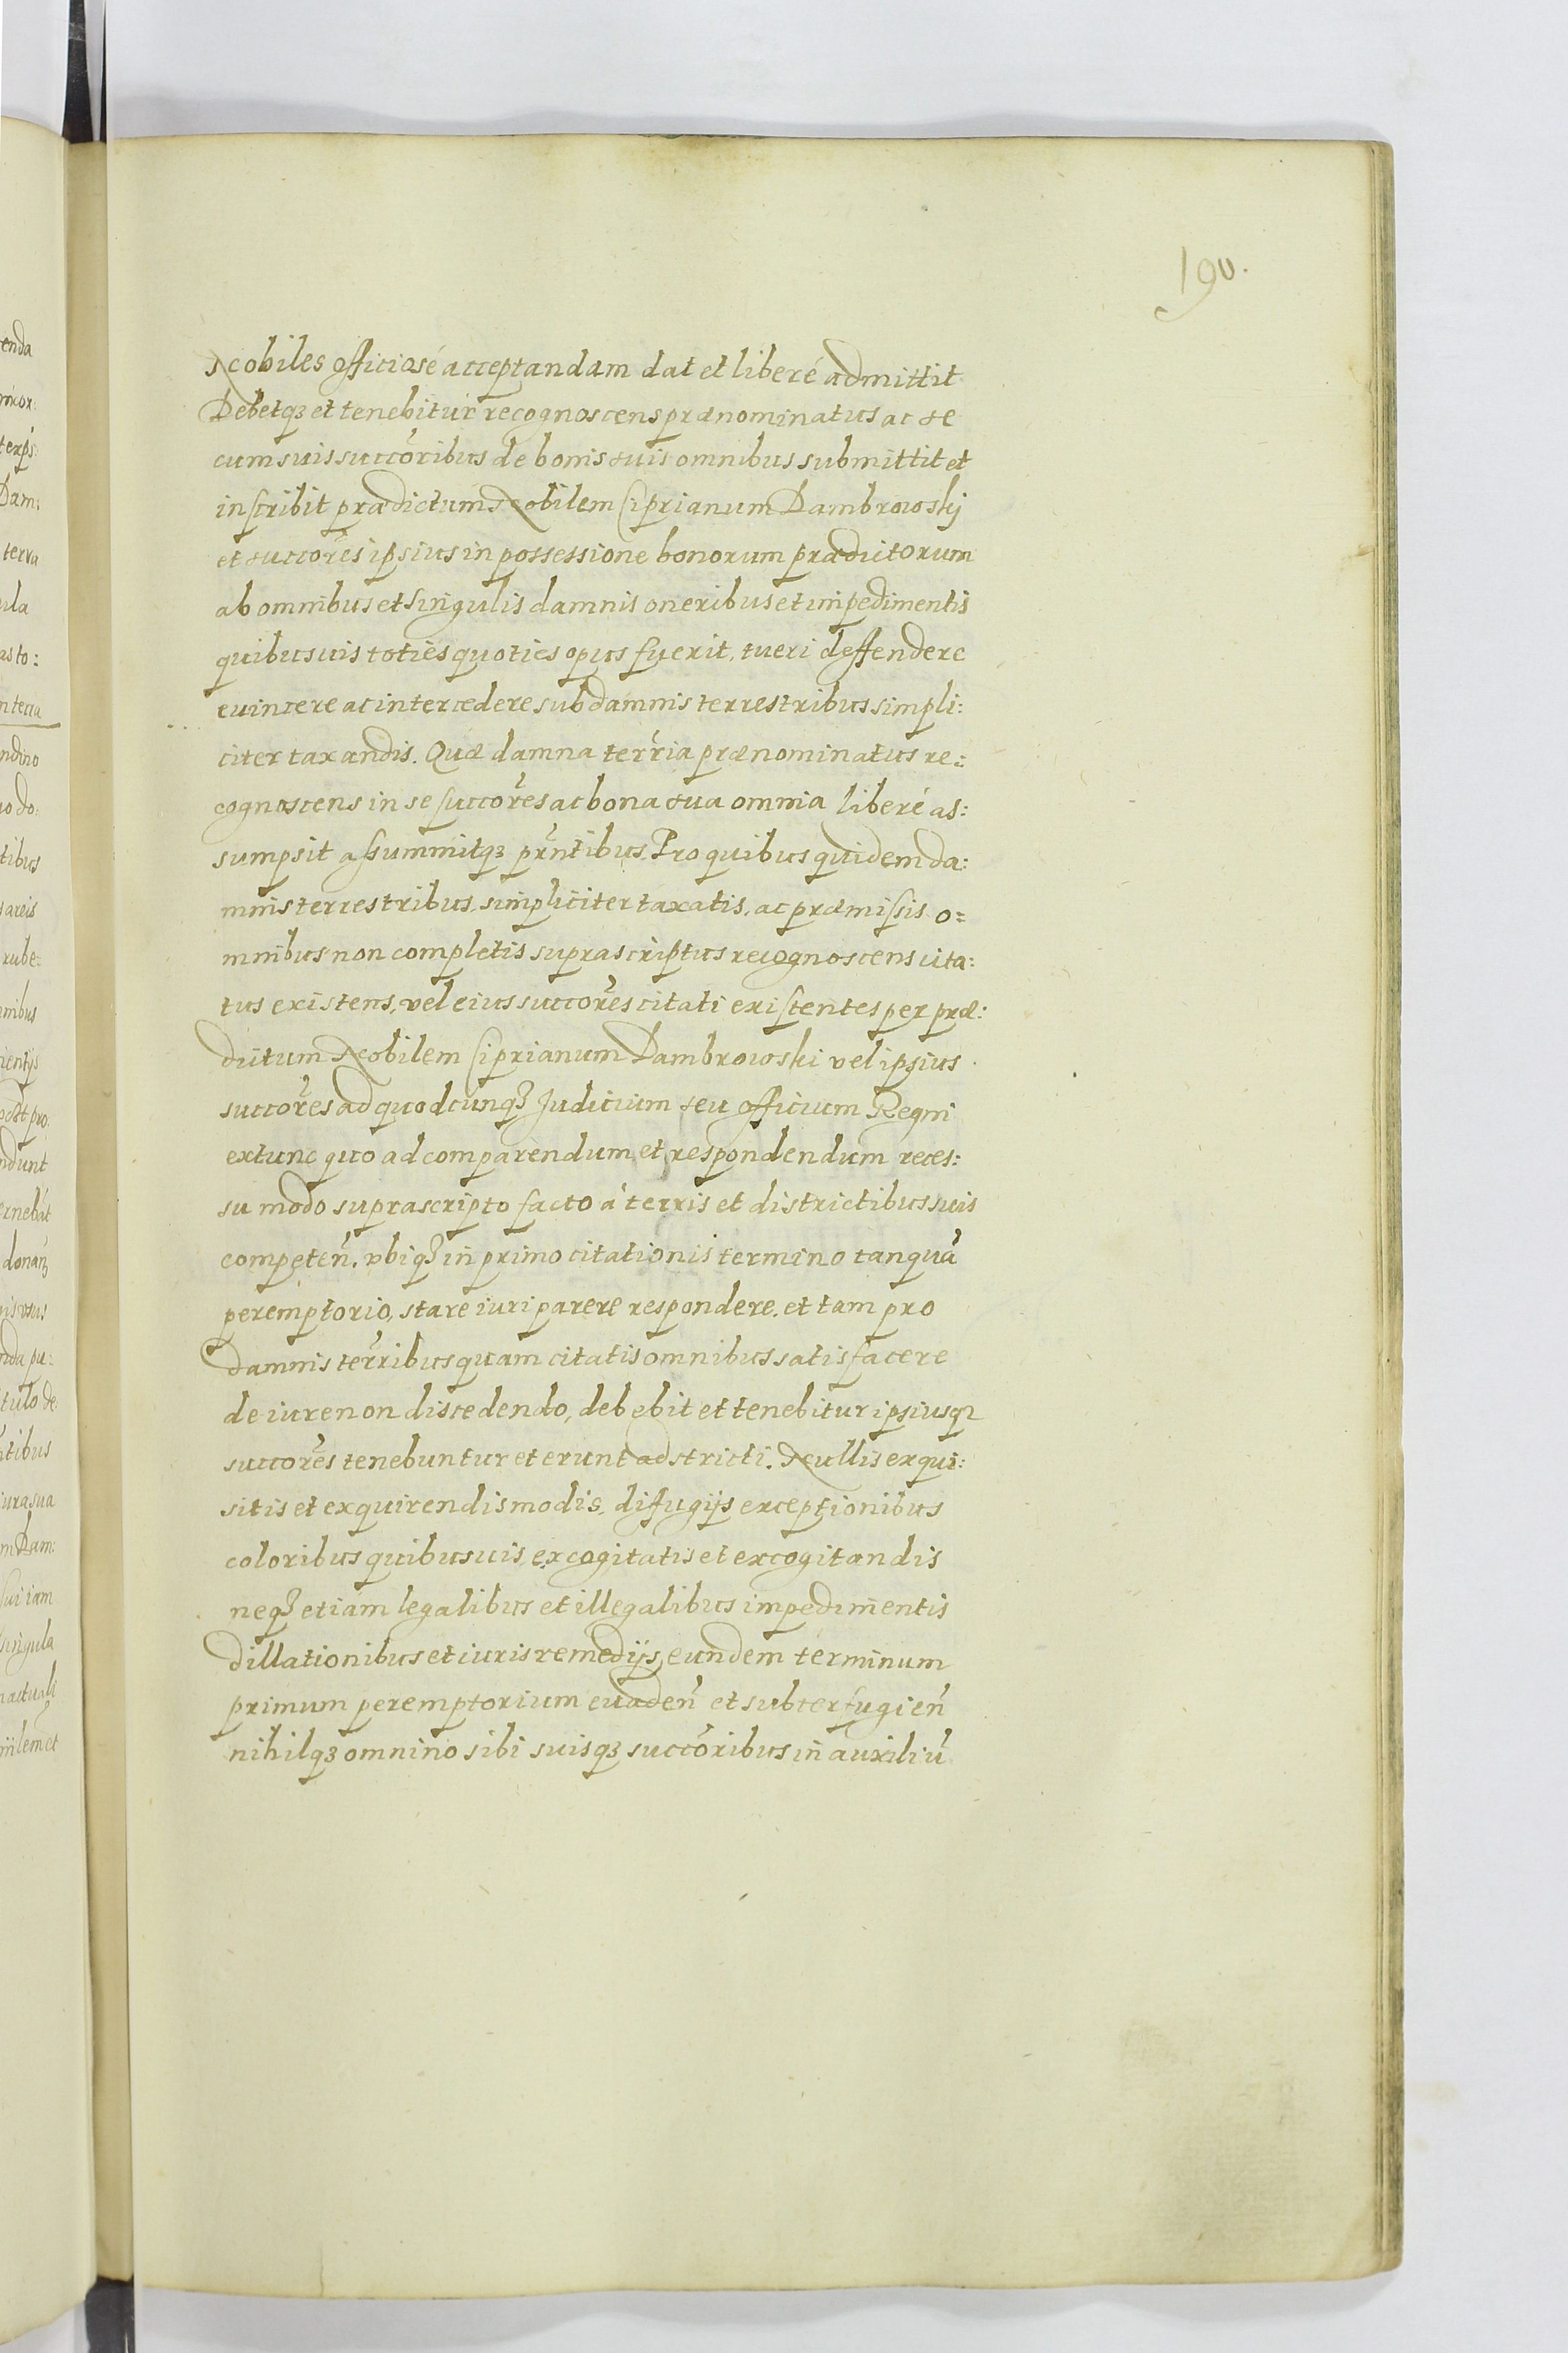 190.
Nobiles officiosé acceptandam dat et liberé admittit
Debetqȝ et tenebitur recognoscens prænominatus ac se
cum suis succōribus de bonis suis omnibus submittit et
inscribit prædictum Nobilem Ciprianum Dambrowskj
et succōres ipsius in possessione bonorum prædictorum
ab omnibus et singulis damnis oneribus et impedimentis
quibusuis toties quoties opus fuerit, tueri deffendere
euincere ac intercedere sub damnis terrestribus simpli:
citer taxandis. Quæ damna terrīa prænominatus re:
cognoscens in se succōres ac bona sua omnia liberé as:
sumpsit assummitqȝ prn̄tibus. Pro quibus quidem da:
mnis terrestribus simpliciter taxatis, ac præmissis o=
mnibus non completis suprascriptus recognoscens cita:
tus existens, vel eius succōres citati existentes per præ:
dictum Nobilem Ciprianum Dambrowski vel ipsius
succōres ad quodcunqȝ Judicium seu officium Regni
extunc quo ad comparendum et respondendum reces:
su modo suprascripto facto á terris et districtibus suis
competen̄. vbiqȝ in primo citationis termino tanquā
peremptorio, stare iuri parere respondere, et tam pro
damnis terrībus quam citatis omnibus satisfacere
de iure non discedendo, debebit et tenebitur ipsiusqȝ
succōres tenebuntur et erunt adstricti. Nullis exqui:
sitis et exquirendis modis, difugijs exceptionibus
coloribus quibusuis excogitatis et excogitandis
neqȝ etiam legalibus et illegalibus impedimentis
dillationibus et iuris remedijs, eundem terminum
primum peremptorium euaden̄ et subterfugien̄
nihilqȝ omnino sibi suisqȝ succōribus in auxiliū